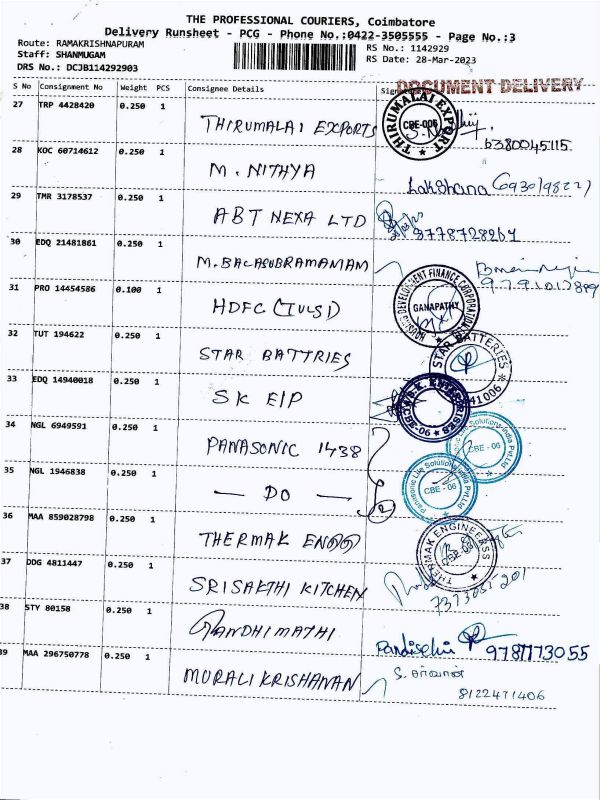 THE PROFESSIONAL COURIERS, Coimbatore
Delivery Runsheet - PCG - Phone No.:0422-3505555 - Page No.:3
Route: RAMAKRISHNAPURAM
Staff: SHANMUGAM
DRS No.: DCJB114292903
RS No.: 1142929
RS Date: 28-Mar-2023
DOCUMENT DELIVERY
S No Consignment No Weight PCS Consignee Details
27 TRP 4428420 0.250 1 THIRUMALAI EXPORTS
THIRUMALAI EXPORT CBE-006
6380045115
28 KOC 60714612 0.250 1 M. NITHYA
Lakshana
29 TMR 3178537 0.250 1 ABT NEXA LTD
9778728264
30 EDQ 21481861 0.250 1 M. BALASUBRAMANIAM
31 PRO 14454586 0.100 1 HDFC (TULSI)
HOUSING DEVELOPMENT FINANCE CORPORATION GANAPATHY
32 TUT 194622 0.250 1 STAR BATTRIES
STAR BATTERIES 41006
33 EDQ 14940018 0.250 1 SK EIP
ENTERPRISES
34 NGL 6949591 0.250 1 PANASONIC 1438
Panasonic Life Solutions India Pvt.Ltd CBE - 06
35 NGL 1946838 0.250 1 — DO —
Panasonic Life Solutions India Pvt.Ltd CBE - 06
2
36 MAA 859028798 0.250 1 THERMAK ENGG
THERMAK ENGINEERSS CBE-06
37 DDG 4811447 0.250 1 SRISAKTHI KITCHEN
38 STY 80158 0.250 1 GANDHIMATHI
9787173055
39 MAA 296750778 0.250 1 MURALI KRISHANAN
8122471406